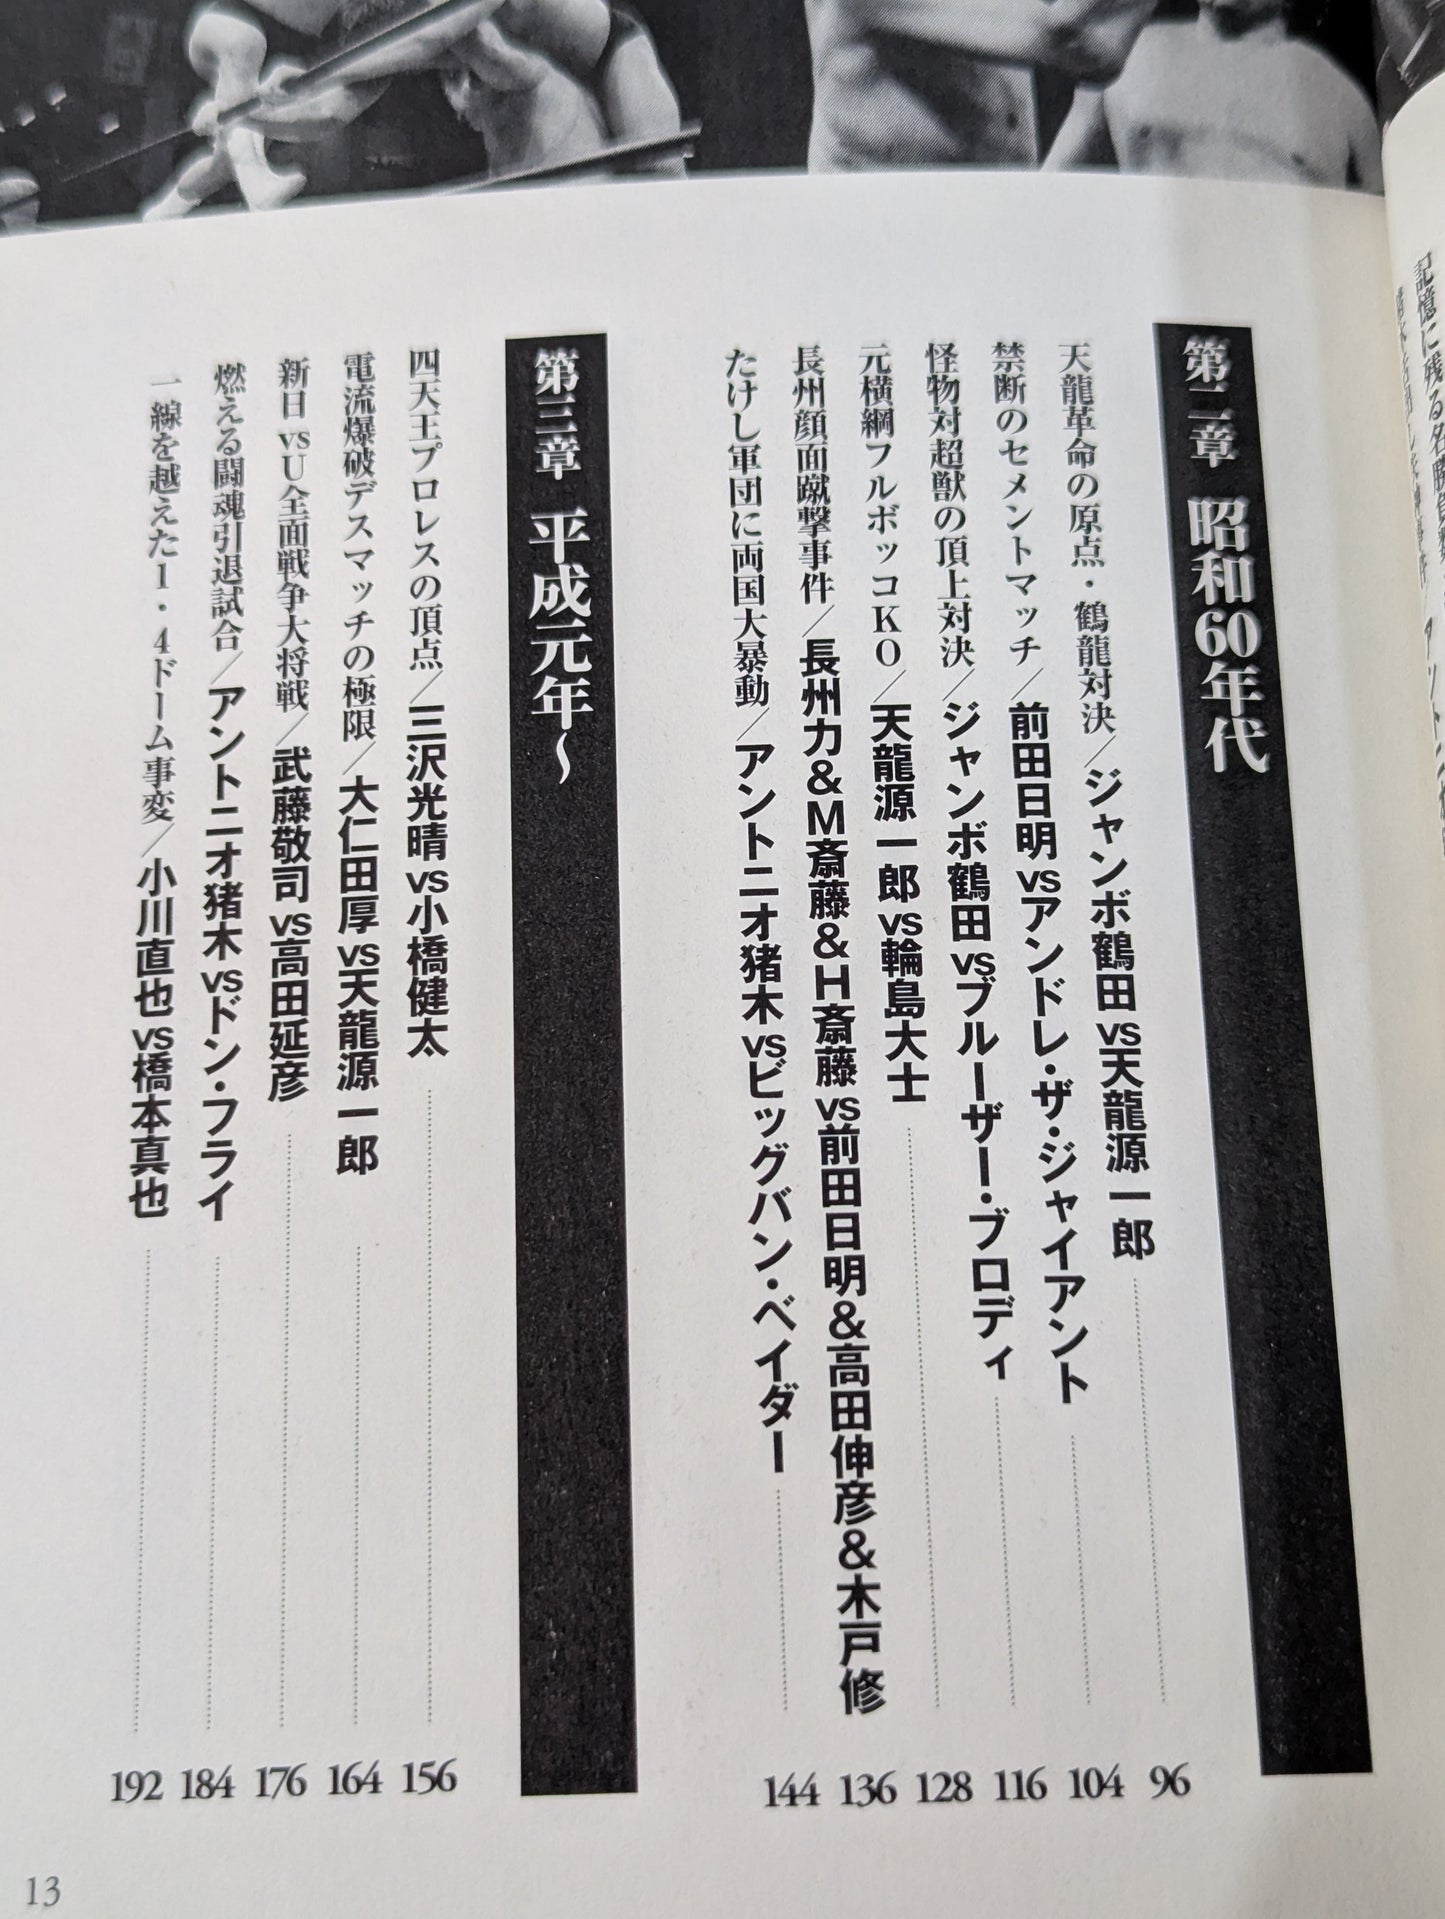 記憶に残る名勝負
第二章 昭和60年代
天龍革命の原点・鶴龍対決/ジャンボ鶴田vs天龍源一郎 96
禁断のセメントマッチ/前田日明vsアンドレ・ザ・ジャイアント 104
怪物対超獣の頂上対決/ジャンボ鶴田vsブルーザー・ブロディ 116
元横綱フルボッコKO/天龍源一郎vs輪島大士 128
長州顔面蹴撃事件/長州力&M斎藤&H斎藤vs前田日明&高田伸彦&木戸修 136
たけし軍団に両国大暴動/アントニオ猪木vsビッグバン・ベイダー 144
第三章 平成元年〜
四天王プロレスの頂点/三沢光晴vs小橋健太 156
電流爆破デスマッチの極限/大仁田厚vs天龍源一郎 164
新日vsU全面戦争大将戦/武藤敬司vs高田延彦 176
燃える闘魂引退試合/アントニオ猪木vsドン・フライ 184
一線を越えた1・4ドーム事変/小川直也vs橋本真也 192
13